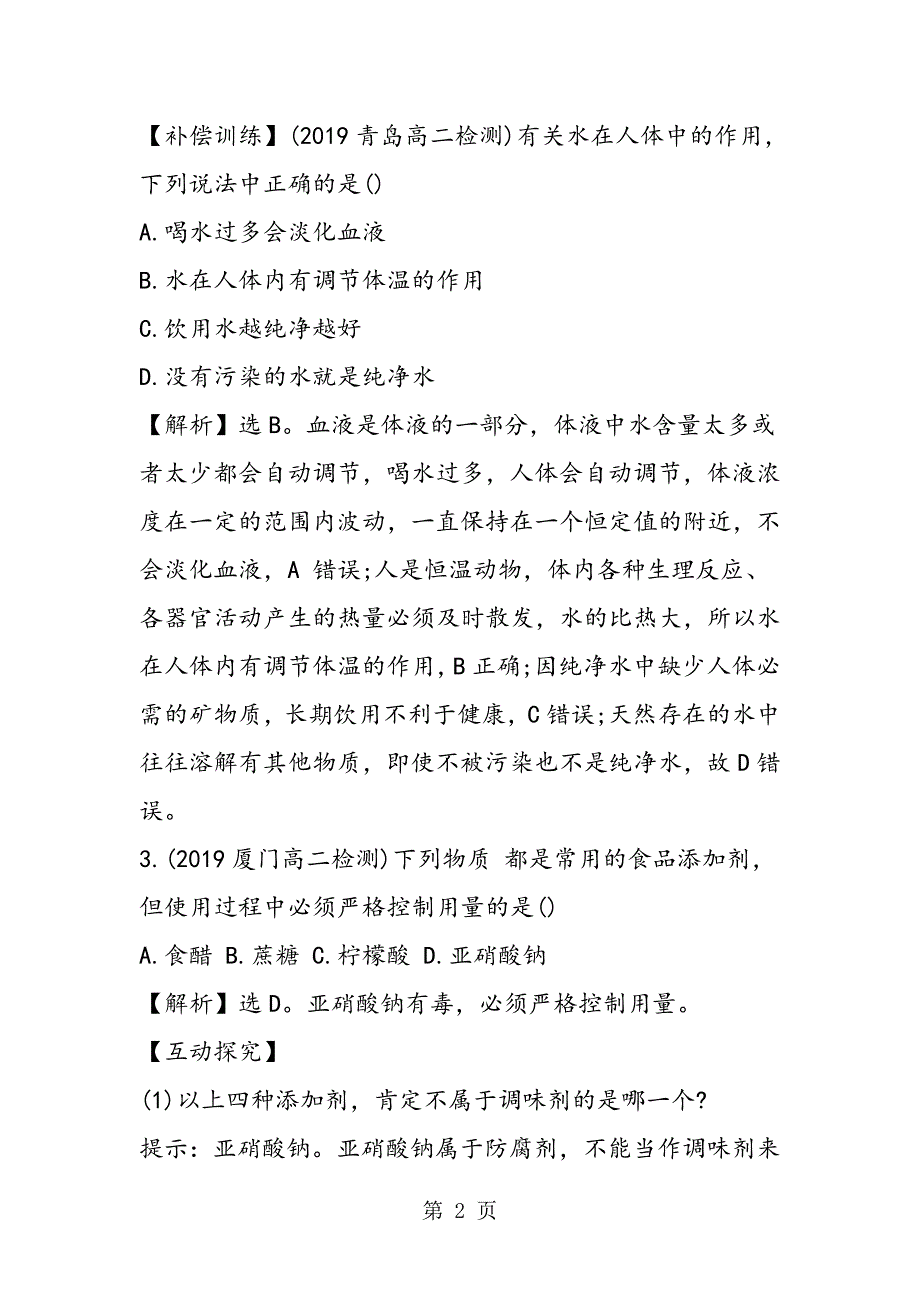 【补偿训练】(2019 青岛高二检测)有关水在人体中的作用，
下列说法中正确的是()
A.喝水过多会淡化血液
B.水在人体内有调节体温的作用
C.饮用水越纯净越好
D.没有污染的水就是纯净水
【解析】选 B。血液是体液的一部分，体液中水含量太多或
者太少都会自动调节，喝水过多，人体会自动调节，体液浓
度在一定的范围内波动，一直保持在一个恒定值的附近，不
会淡化血液，A 错误;人是恒温动物，体内各种生理反应、
各器官活动产生的热量必须及时散发，水的比热大，所以水
在人体内有调节体温的作用,B 正确;因纯净水中缺少人体必
需的矿物质，长期饮用不利于健康，C 错误;天然存在的水中
往往溶解有其他物质，即使不被污染也不是纯净水，故 D 错
误。
3.(2019 厦门高二检测)下列物质 都是常用的食品添加剂，
但使用过程中必须严格控制用量的是()
A.食醋 B.蔗糖 C.柠檬酸 D.亚硝酸钠
【解析】选 D。亚硝酸钠有毒，必须严格控制用量。
【互动探究】
(1)以上四种添加剂，肯定不属于调味剂的是哪一个?
提示：亚硝酸钠。亚硝酸钠属于防腐剂，不能当作调味剂来
第 2 页